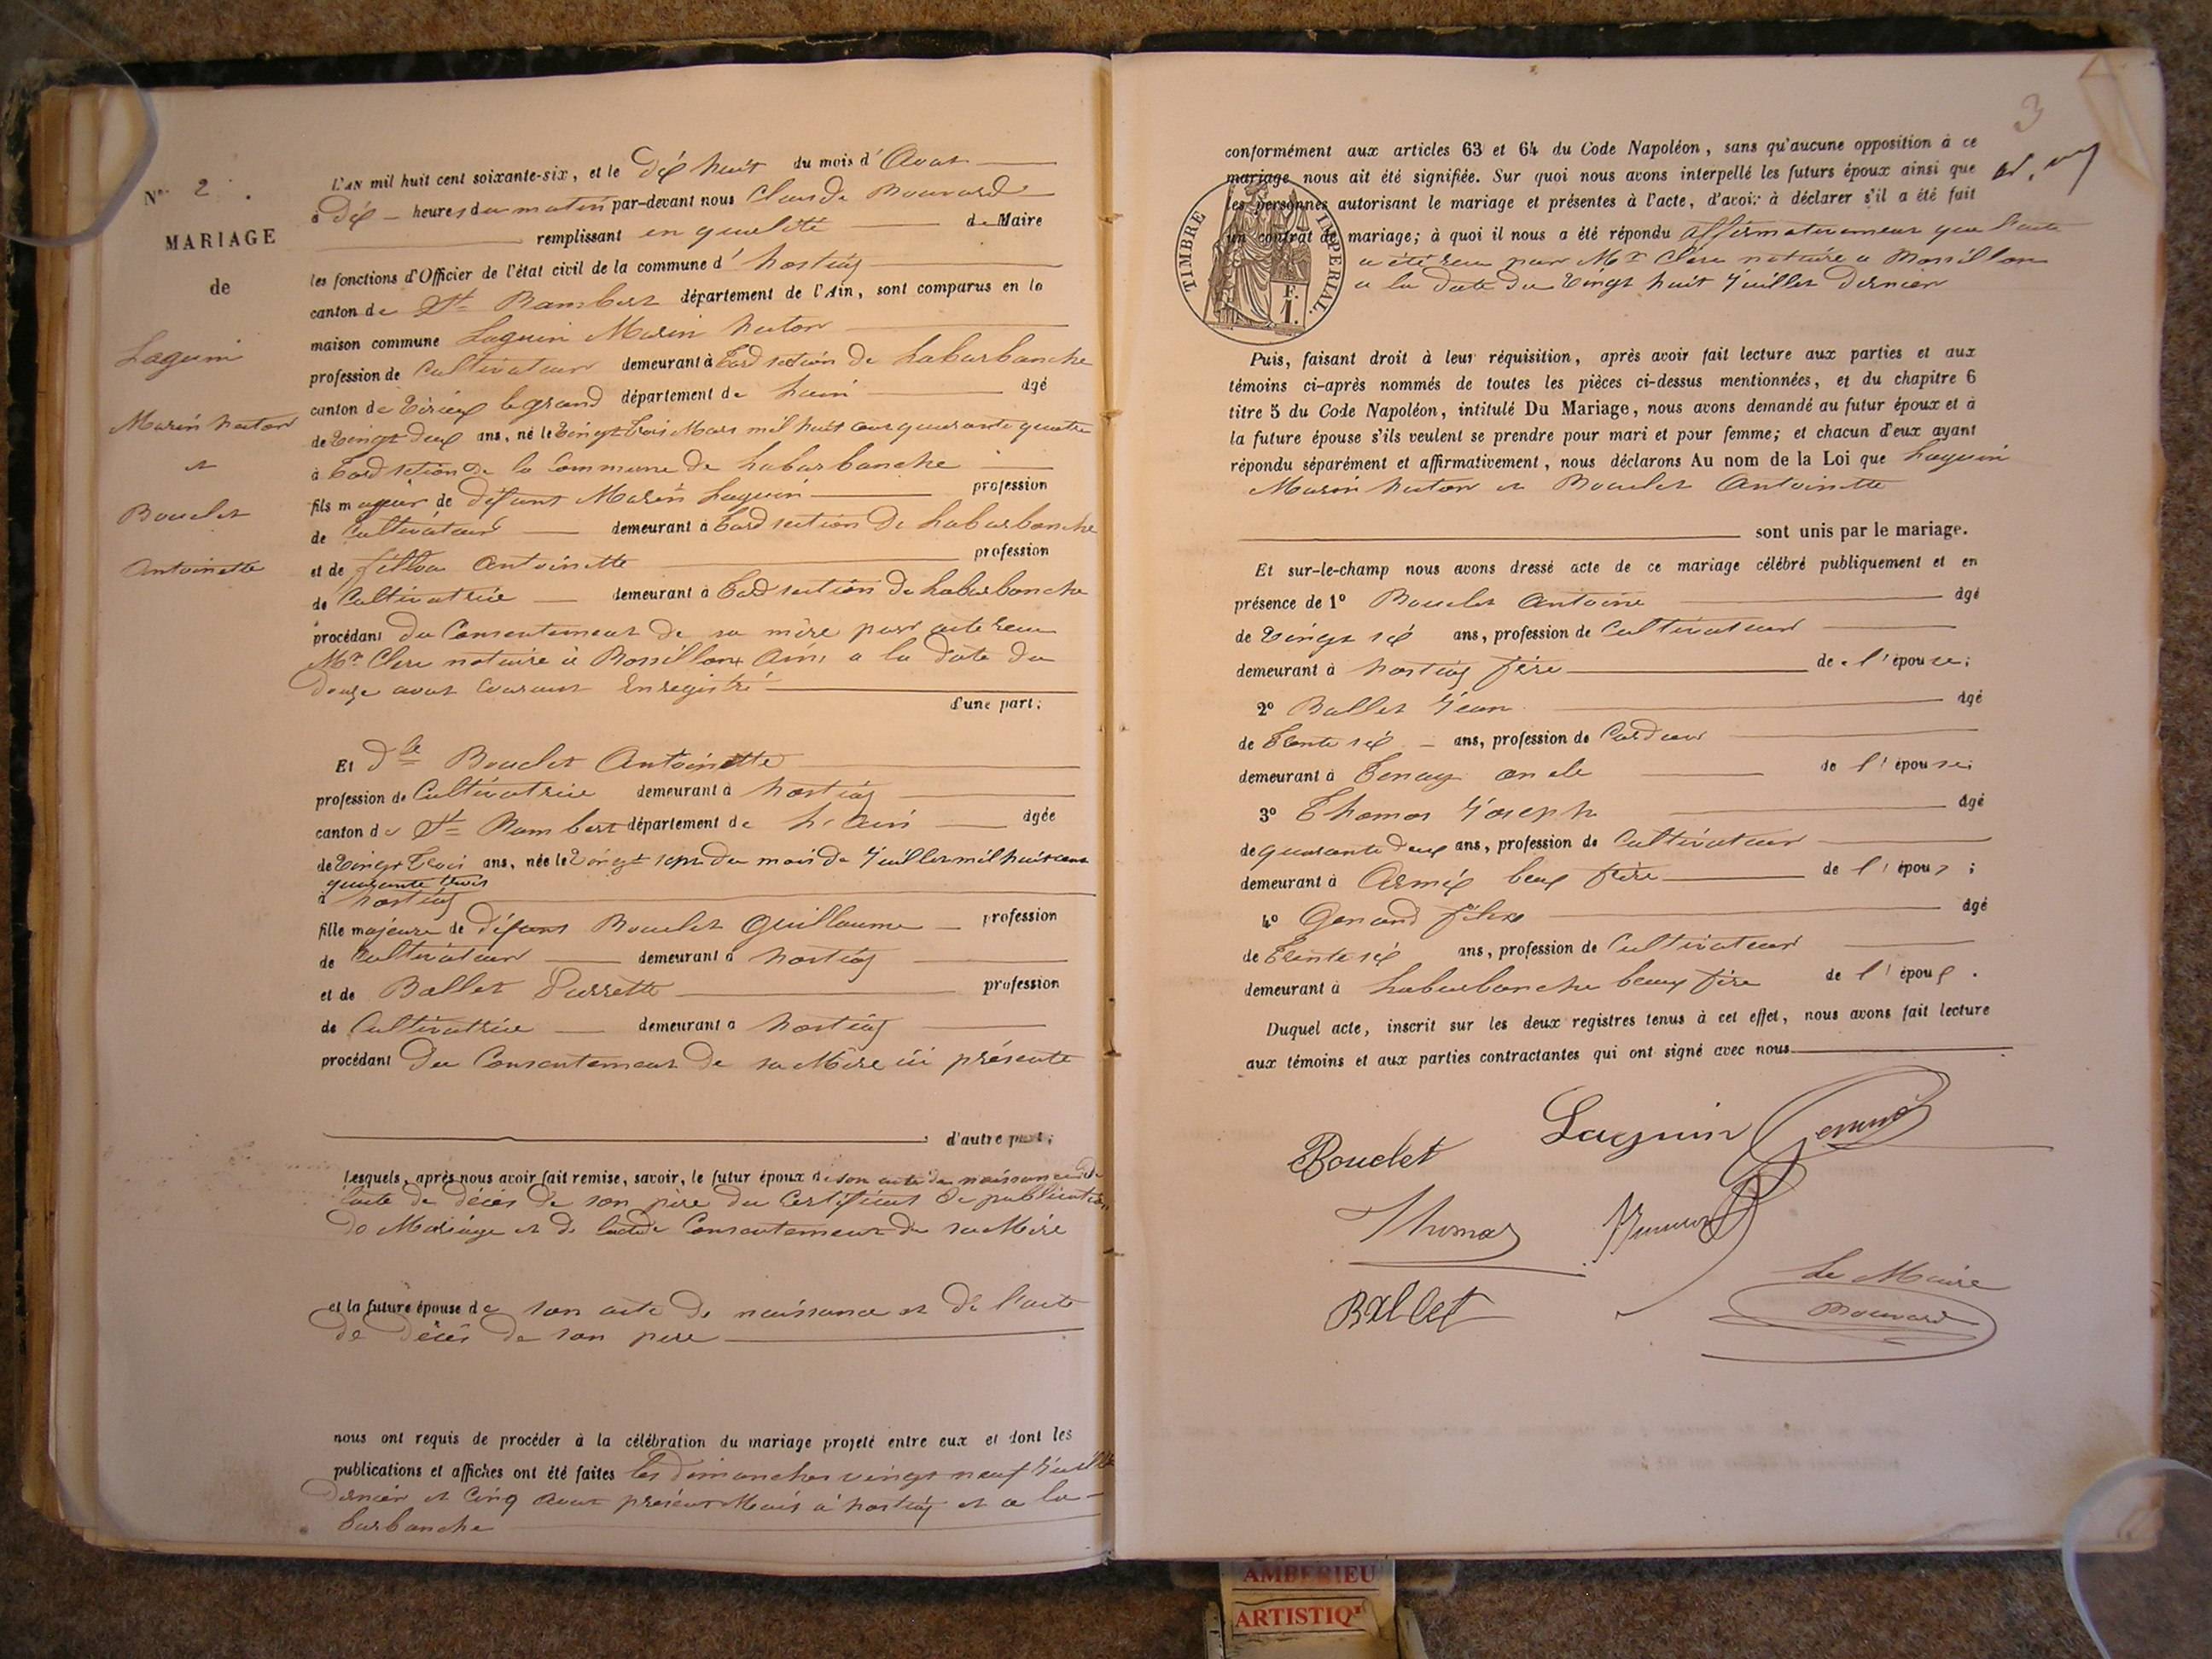 N° 2.
MARIAGE
de
Laguin
Marin hector
et
Bouclet
Antoinette
L'AN mil huit cent soixante-six, et le Dix huit du mois d'Aout
à Dix heures du matin par-devant nous Claude Bouvard
remplissant en qualité de Maire
les fonctions d'Officier de l'état civil de la commune d'hostiaz
canton de St Rambert département de l'Ain, sont comparus en la
maison commune Laguin Marin
profession de Cultivateur demeurant à section de Laburbanche
canton de Virieux le grand département de Lain âgé
de Vingt Deux ans, né le Vingt trois Mars mil huit cent quarante quatre
à section de la Commune de Laburbanche
fils majeur de Défunt Marin Laguin profession
de Cultivateur demeurant à section De Laburbanche
et de Antoinette profession
de Cultivatrice demeurant à section De Laburbanche
procédant Du Consentement de sa mère par acte recu
Mr Clerc notaire à Rossillon Ain a la date du
Douze aout Courant Enregistré
d'une part;
Et Dlle Bouclet Antoinette
profession de Cultivatrice demeurant à hostiaz
canton de St Rambert département de L'Ain âgée
de Vingt Trois ans, née le Vingt sept du mois de Juillet mil huit cent
quarante trois
à hostiaz
fille majeure de Défunt Bouclet Guillaume profession
de Cultivateur demeurant à hostiaz
et de Ballet Pierrette profession
de Cultivatrice demeurant à hostiaz
procédant Du Consentement De sa Mère ici présente
d'autre part;
Lesquels, après nous avoir fait remise, savoir, le futur époux de son acte de naissance de
lacte de décès de son père du Certificat De publication
de Mariage et de lacte de Consentement de sa Mère
et la future épouse de son acte de naissance et De l'acte
de décès de son pere
nous ont requis de procéder à la célébration du mariage projeté entre eux et dont les
publications et affiches ont été faites les dimanches vingt neuf Juillet
Dernier et Cinq Aout présent Mois à hostiaz et a la
burbanche
3
conformément aux articles 63 et 64 du Code Napoléon, sans qu'aucune opposition à ce
mariage nous ait été signifiée. Sur quoi nous avons interpellé les futurs époux ainsi que
les personnes autorisant le mariage et présentes à l'acte, d'avoir à déclarer s'il a été fait
un contrat de mariage; à quoi il nous a été répondu affirmativement que l'acte
a été recu par Mr Clerc notaire a Rossillon
a la date du Vingt huit Juillet Dernier
TIMBRE IMPERIAL
1 F.
Puis, faisant droit à leur réquisition, après avoir fait lecture aux parties et aux
témoins ci-après nommés de toutes les pièces ci-dessus mentionnées, et du chapitre 6
titre 5 du Code Napoléon, intitulé Du Mariage, nous avons demandé au futur époux et à
la future épouse s'ils veulent se prendre pour mari et pour femme; et chacun d'eux ayant
répondu séparément et affirmativement, nous déclarons Au nom de la Loi que Laguin
Marin hector et Bouclet Antoinette
sont unis par le mariage.
Et sur-le-champ nous avons dressé acte de ce mariage célébré publiquement et en
présence de 1° Bouclet Antoine âgé
de Vingt six ans, profession de Cultivateur
demeurant à hostiaz frère de l'épouse;
2° Ballet Jean âgé
de Trente six ans, profession de Cardeur
demeurant à Tenay oncle de l'épouse;
3° Thomas Joseph âgé
de quarante deux ans, profession de Cultivateur
demeurant à Armix beux frère de l'époux;
4° Genand Félix âgé
de Trente six ans, profession de Cultivateur
demeurant à Laburbanche beaux frère de l'époux.
Duquel acte, inscrit sur les deux registres tenus à cet effet, nous avons fait lecture
aux témoins et aux parties contractantes qui ont signé avec nous
Bouclet Laguin
Thomas
Ballet
Le Maire
Bouvard
AMBERIEU
ARTISTIQ